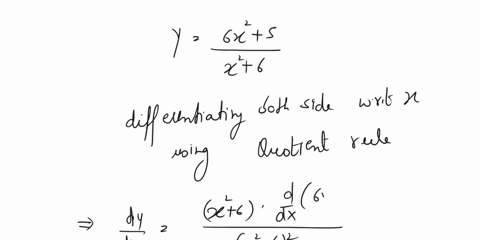 y = (6x²+5)/(x²+6)
differentiating both side w.r.t x
using Quotient rule
⇒ dy/ = (x²+6) · d/dx (6